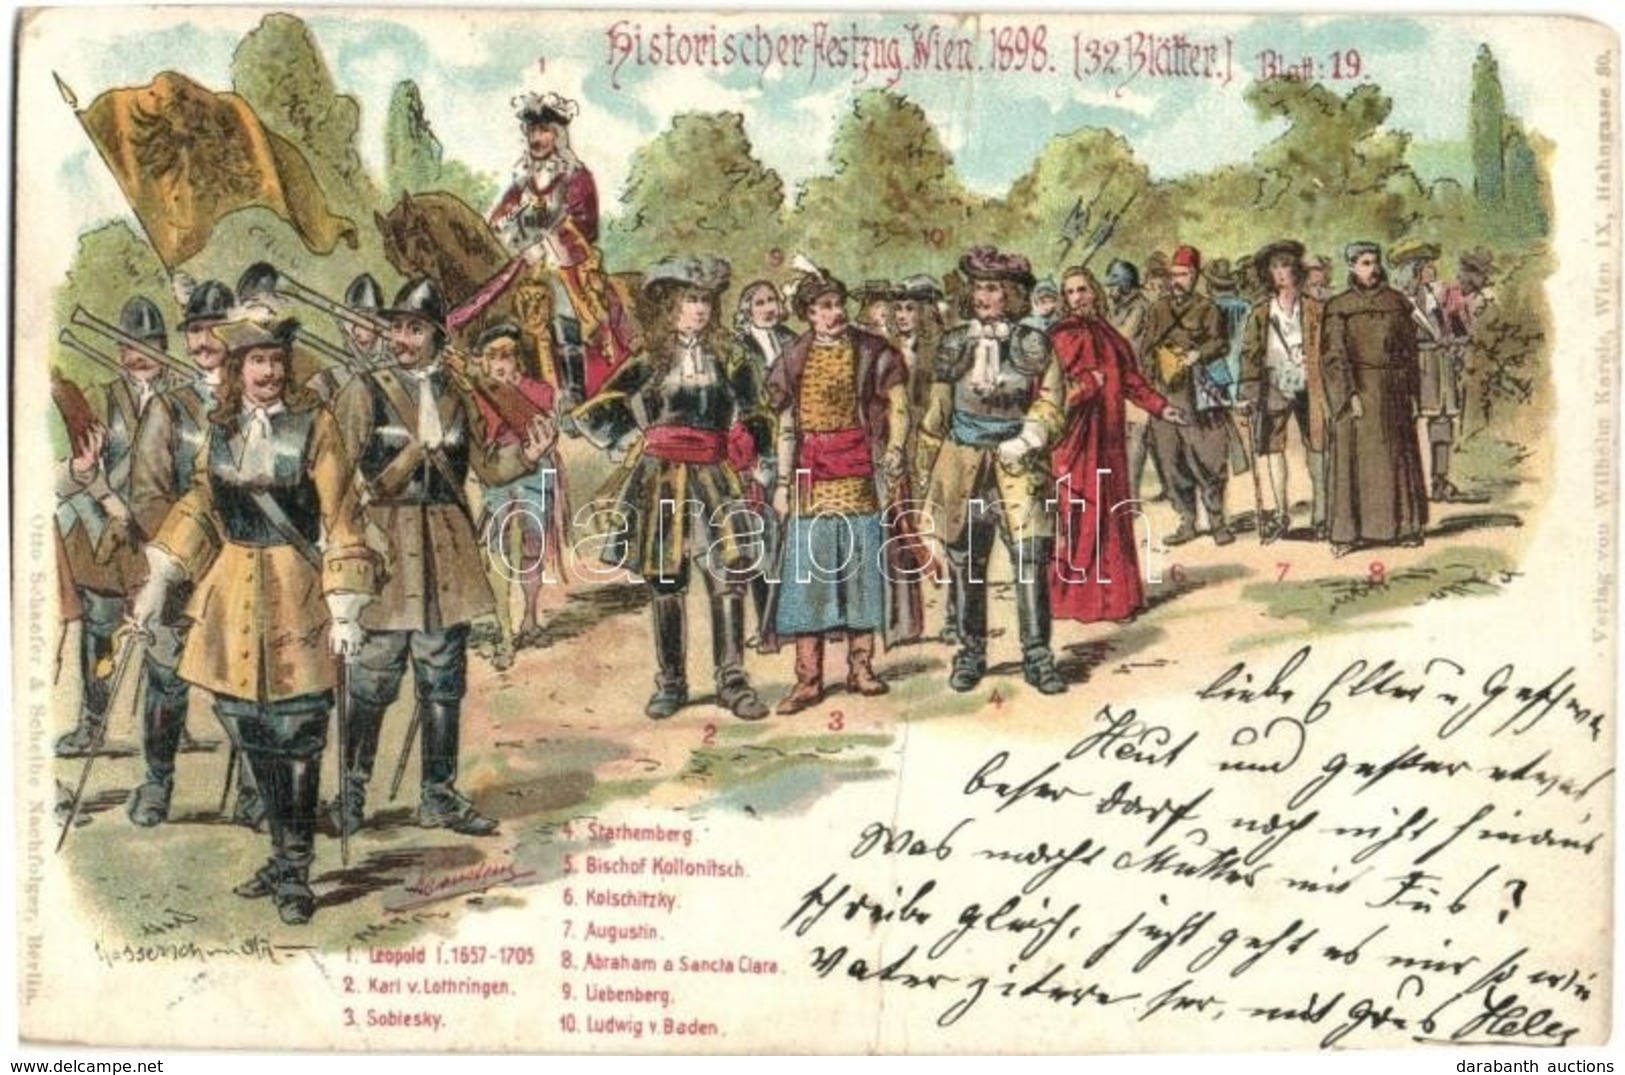 Historischer Festzug. Wien. 1898. [32 Blätter.] Blatt: 19.
1
10
9
6
7
8
4
2
3
4. Starhemberg.
5. Bischof Kollonitsch.
6. Kolschitzky.
7. Augustin.
8. Abraham a Sancta Clara.
9. Liebenberg.
10. Ludwig v. Baden.
1. Leopold I. 1657-1705
2. Karl v. Lothringen.
3. Sobiesky.
Otto Schaefer & Scheibe Nachfolger, Berlin.
Verlag von Wilhelm Karela, Wien IX, Hahngasse 30.
liebe Elter u Geschw
Heut und gester etwas
beser darf noch nicht hinaus
Was macht Mutter mit Fus?
schreibe gleich, jecht geht es mir so wie
Vater zitere ser, mit grus
darabanth
darabanth auctions